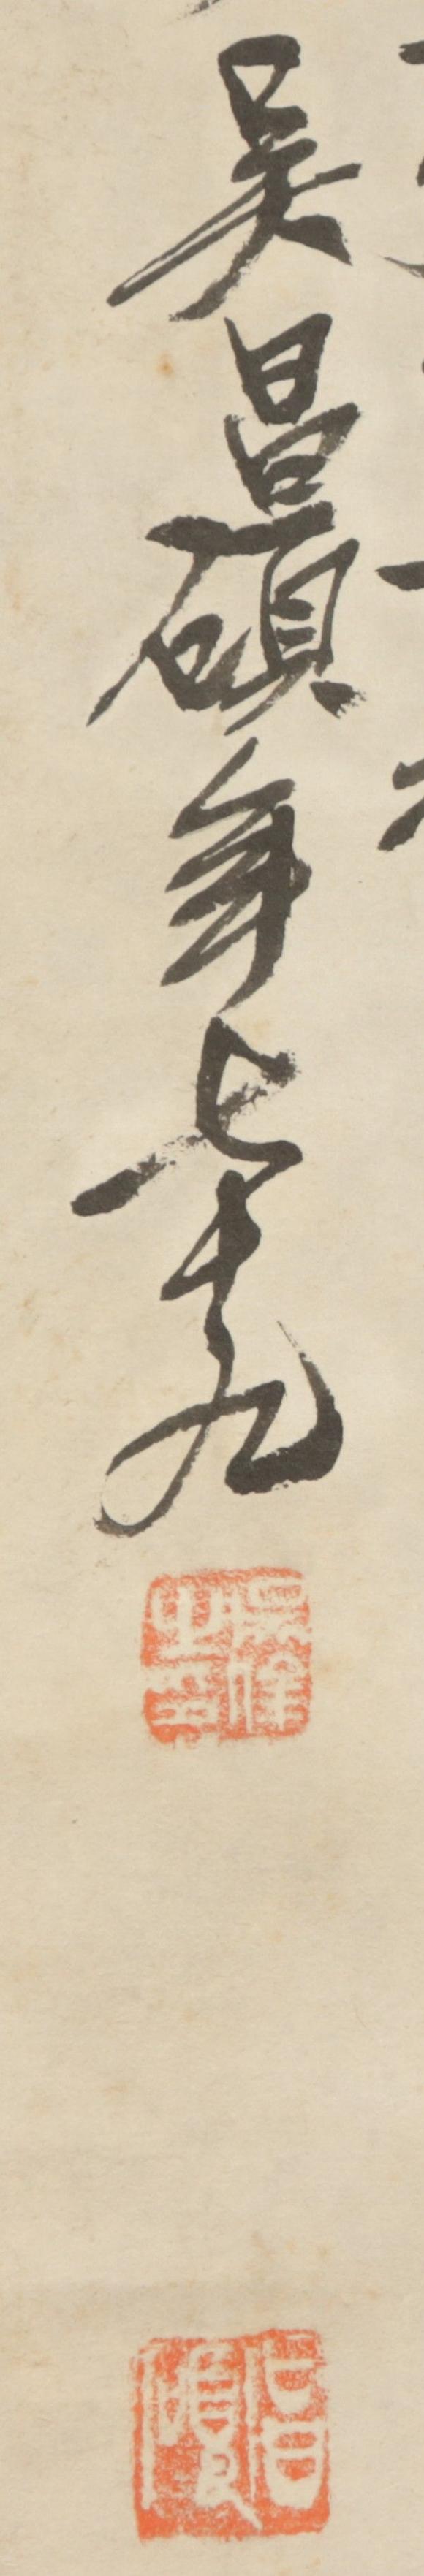 吳昌碩年七十九
吳俊之印
倉碩